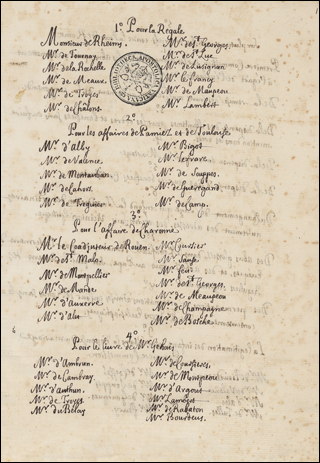 1º Pour la Regale
Monsieur de Rheims.
Mr. de Tournay
Mr. de la Rochelle
Mr. de Meaux.
Mr. de Troyes
Mr. de Chalons.
Mr. de St. Georges.
Mr. de St. Luc
Mr. de Lusignan
Mr. le francy
Mr. de Maupeou
Mr. Lambert
2º
Pour les affaires de Pamiez et de Toulouse.
Mr. d'alby
Mr. de Valence.
Mr. de Montauban
Mr. de Cahors.
Mr. de Treguier
Mr. Bigot
Mr. ferrare.
Mr. de Suppes.
Mr. de Guenegaud.
Mr. de Camp.
3º
Pour l'Affaire de Charonne.
Mr. le Coadjuteur de Rouen.
Mr. de St. Malo.
Mr. de Montpellier
Mr. de Mande
Mr. d'Auxerre
Mr. d'alet
Mr. Courcier
Mr. feu
Mr. de St. Georges.
Mr. de Maupeou
Mr. de Champagne
Mr. de Bosche
4º
Pour le livre de Mr.
Mr. d'Ambrun.
Mr. de Cambray.
Mr. d'authun.
Mr. de Troyes
Mr. du Belay
Mr. de Coussieres.
Mr. de Monspeou
Mr. d'Argout
Mr. Lamoget
Mr. de Rabaton
Mr. Bourdeus.